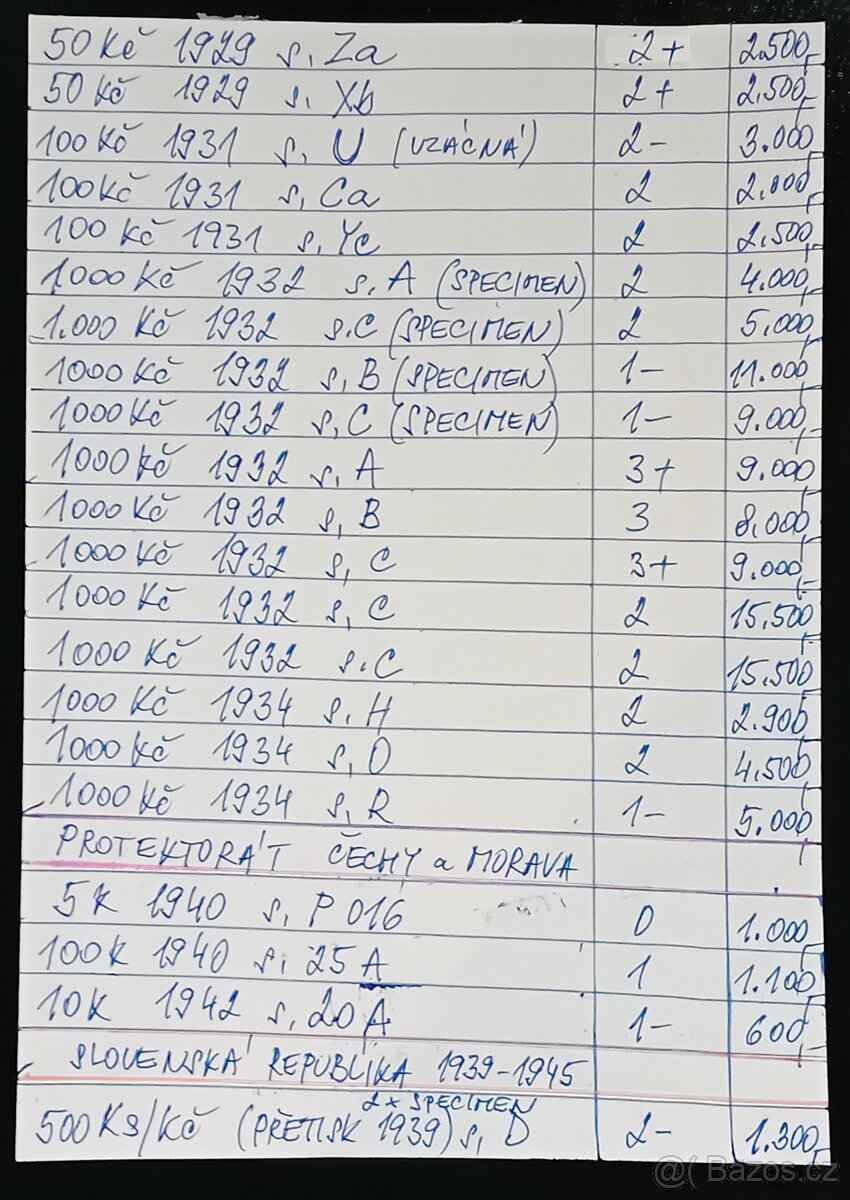 50 Kč 1929 s, Za 2+ 2.500,-
50 Kč 1929 s. Xb 2+ 2.500,-
100 Kč 1931 s. U (VZÁCNÁ) 2- 3.000,-
100 Kč 1931 s, Ca 2 2.000,-
100 Kč 1931 s, Yc 2 2.500,-
1.000 Kč 1932 s. A (SPECIMEN) 2 4.000,-
1.000 Kč 1932 s.C (SPECIMEN) 2 5.000,-
1000 Kč 1932 s, B (SPECIMEN) 1- 11.000,-
1000 Kč 1932 s, C (SPECIMEN) 1- 9.000,-
1000 Kč 1932 s, A 3+ 9.000,-
1000 Kč 1932 s, B 3 8.000,-
1000 Kč 1932 s, C 3+ 9.000,-
1000 Kč 1932 s, C 2 15.500,-
1000 Kč 1932 s.C 2 15.500,-
1000 Kč 1934 s. H 2 2.900,-
1000 Kč 1934 s, O 2 4.500,-
1000 Kč 1934 s, R 1- 5.000,-
PROTEKTORÁT ČECHY a MORAVA
5K 1940 s, P 016 0 1.000,-
100K 1940 s. 25 A 1 1.100,-
10K 1942 s, 20 A 1- 600,-
SLOVENSKÁ REPUBLIKA 1939-1945
2x SPECIMEN
500 Ks/Kč (PŘETISK 1939) s, D 2- 1.300,-
@( Bazos.cz